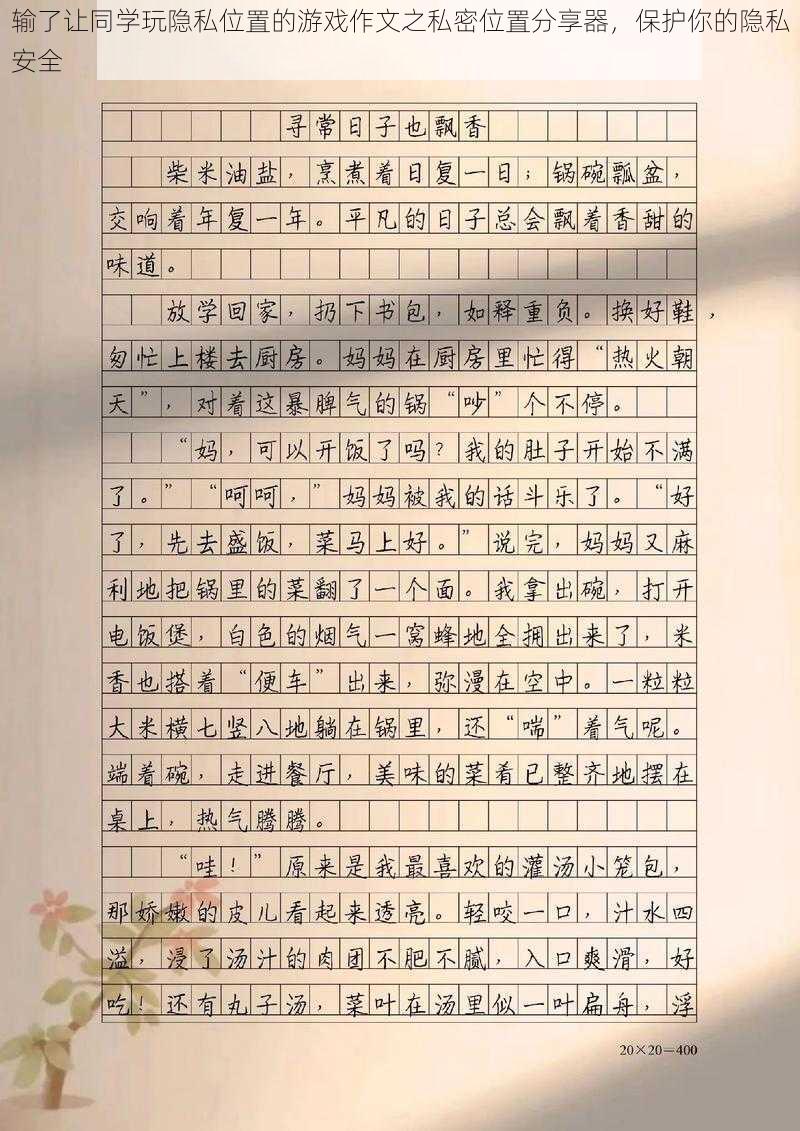 输了让同学玩隐私位置的游戏作文之私密位置分享器，保护你的隐私
安全
寻常日子也飘香
柴米油盐，烹煮着日复一日；锅碗瓢盆，
交响着年复一年。平凡的日子总会飘着香甜的
味道。
放学回家，扔下书包，如释重负。换好鞋，
匆忙上楼去厨房。妈妈在厨房里忙得“热火朝
天”，对着这暴脾气的锅“吵”个不停。
“妈，可以开饭了吗？我的肚子开始不满
了。”“呵呵，”妈妈被我的话斗乐了。“好
了，先去盛饭，菜马上好。”说完，妈妈又麻
利地把锅里的菜翻了一个面。我拿出碗，打开
电饭煲，白色的烟气一窝蜂地全拥出来了，米
香也搭着“便车”出来，弥漫在空中。一粒粒
大米横七竖八地躺在锅里，还“喘”着气呢。
端着碗，走进餐厅，美味的菜肴已整齐地摆在
桌上，热气腾腾。
“哇！”原来是我最喜欢的灌汤小笼包，
那娇嫩的皮儿看起来透亮。轻咬一口，汁水四
溢，浸了汤汁的肉团不肥不腻，入口爽滑，好
吃！还有丸子汤，菜叶在汤里似一叶扁舟，浮
20×20=400